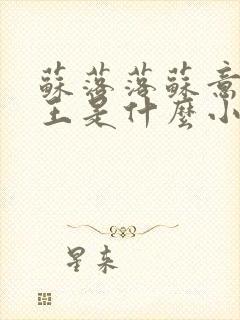 蘇落落蘇意
王是什麼小
星來